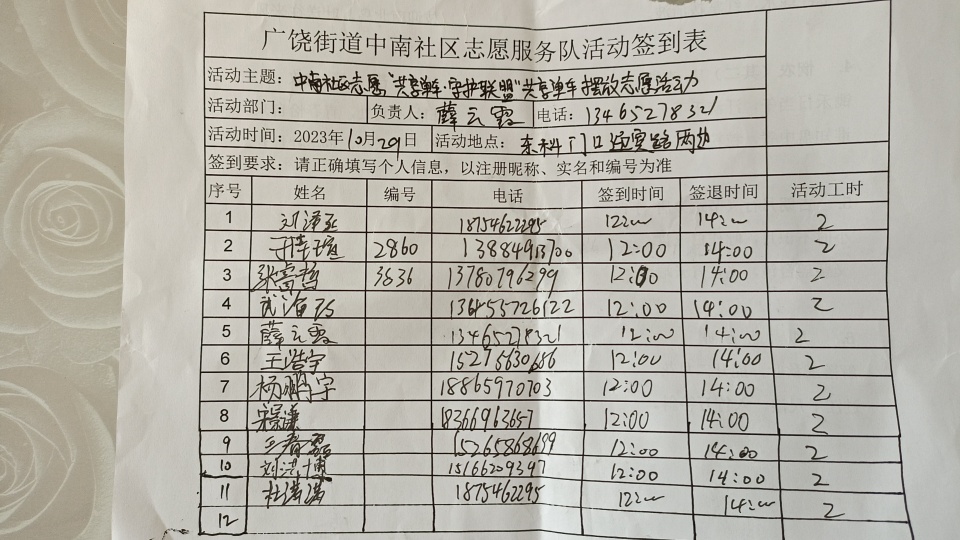 广饶街道中南社区志愿服务队活动签到表
活动主题：中南社区志愿"共享单车·守护联盟"共享单车摆放志愿活动
活动部门： 负责人：薛云霞 电话：13465278321
活动时间：2023年10月29日 活动地点：东科门口 两边
签到要求：请正确填写个人信息，以注册昵称、实名和编号为准
序号 姓名 编号 电话 签到时间 签退时间 活动工时
1 18754622295 12:00 14:00 2
2 2860 12:00 14:00 2
3 张睿哲 3836 13780796299 12:00 14:00 2
4 136455726122 12:00 14:00 2
5 薛云霞 13465278321 12:00 14:00 2
6 王浩宇 15275630686 12:00 14:00 2
7 杨鹏宇 18865970703 12:00 14:00 2
8 18366963657 12:00 14:00 2
9 15265868699 12:00 14:00 2
10 刘洪博 15166209397 12:00 14:00 2
11 杜潇潇 1875462295 12:00 14:00 2
12